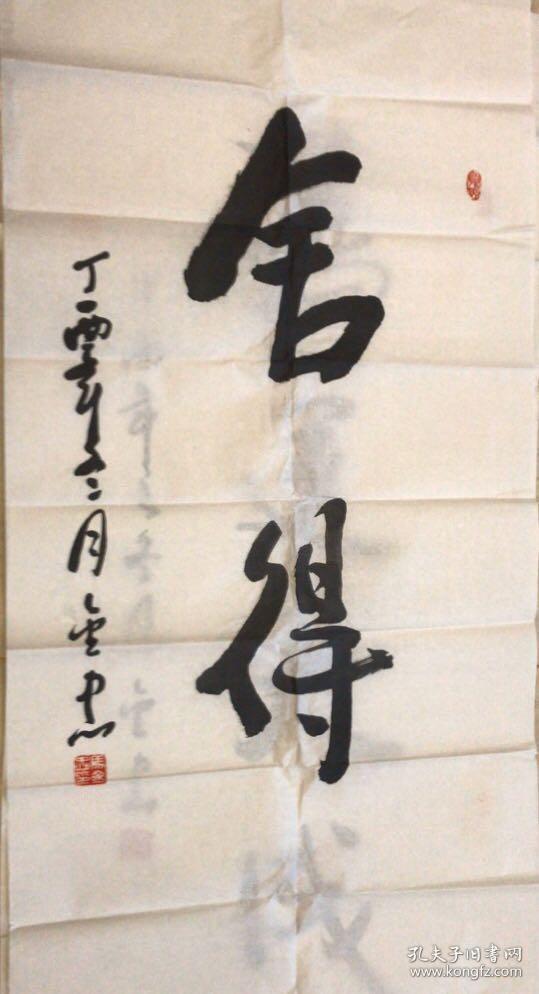 舍得
丁酉年十二月金忠
孔夫子旧书网
www.kongfz.com